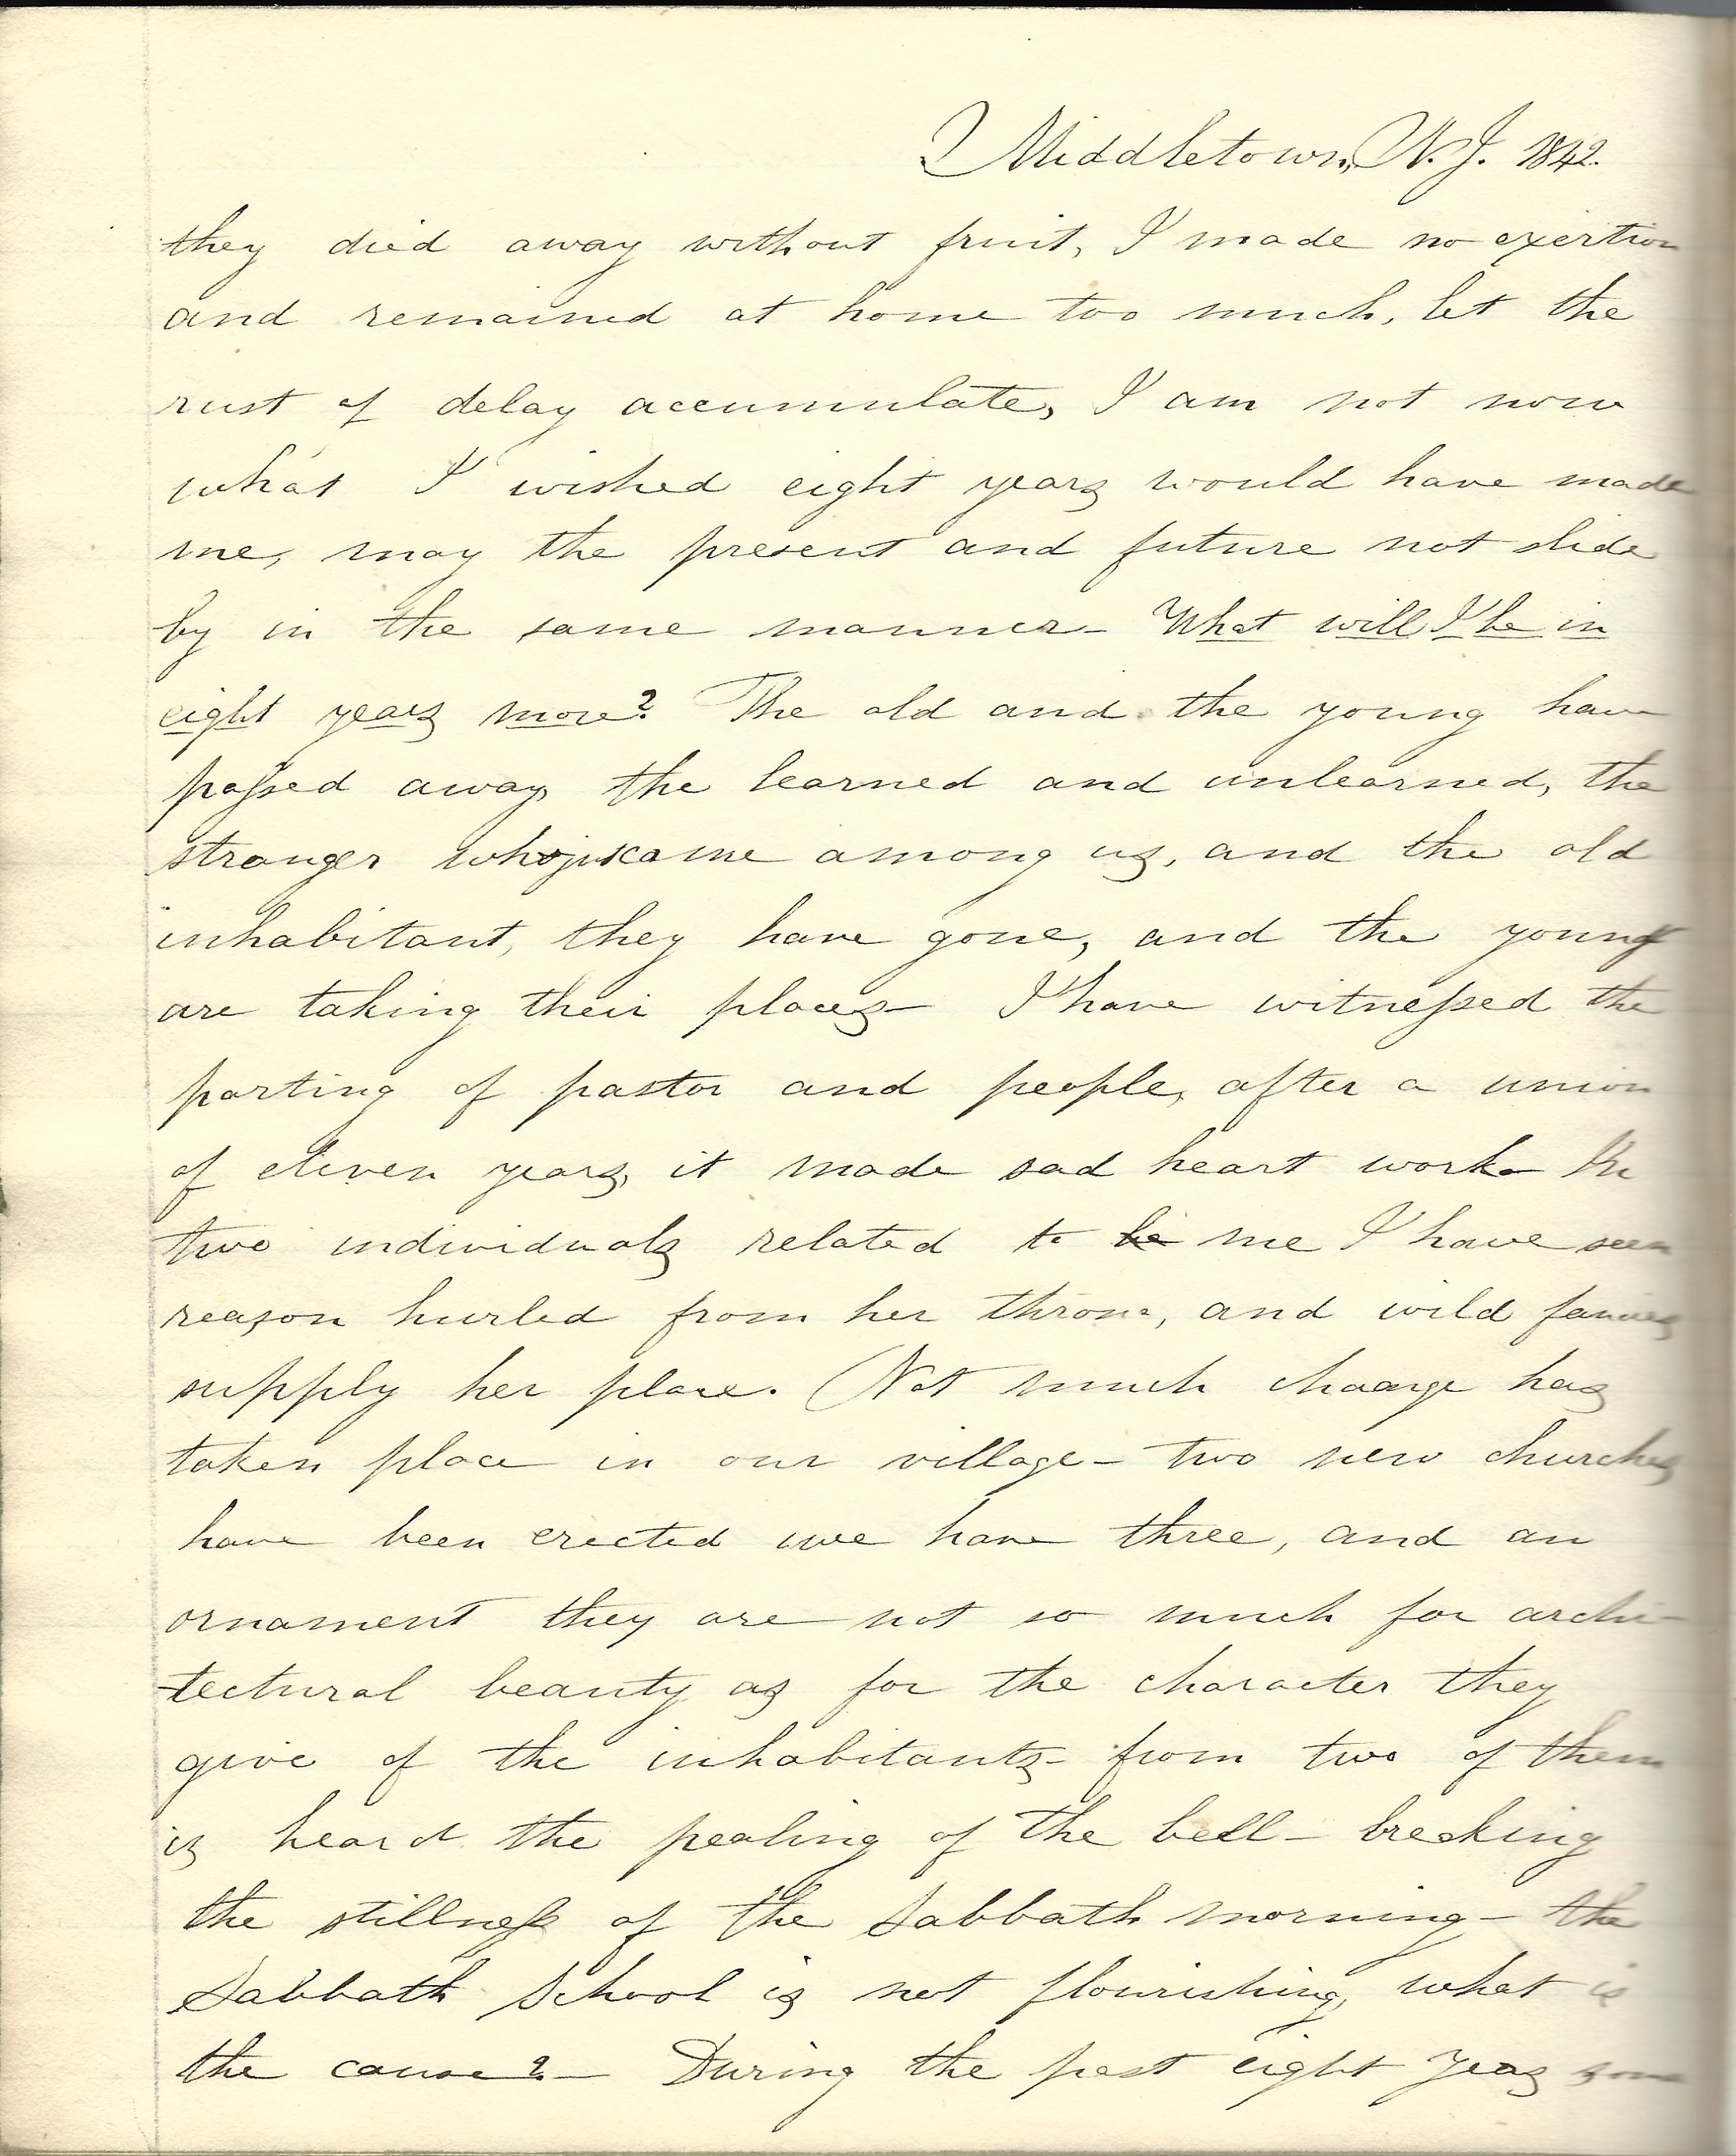 Middletown, N. J. 1842.
they died away without fruit, I made no exertion
and remained at home too much, let the
rust of delay accumulate, I am not now
what I wished eight years would have made
me, may the present and future not slide
by in the same manner- What will I be in
eight years more? The old and the young have
passed away, the learned and unlearned, the
stranger who just came among us, and the old
inhabitant, they have gone, and the young
are taking their places- I have witnessed the
parting of pastor and people, after a union
of eleven years, it made sad heart work- In
two individuals related to be me I have seen
reason hurled from her throne, and wild fancies
supply her place. Not much chaange has
taken place in our village- two new churches
have been erected we have three, and an
ornament they are not so much for archi-
-tectural beauty as for the character they
give of the inhabitants- from two of them
is heard the pealing of the bell- breaking
the stillness of the Sabbath morning- the
Sabbath School is not flourishing, what is
the cause?- During the past eight years some